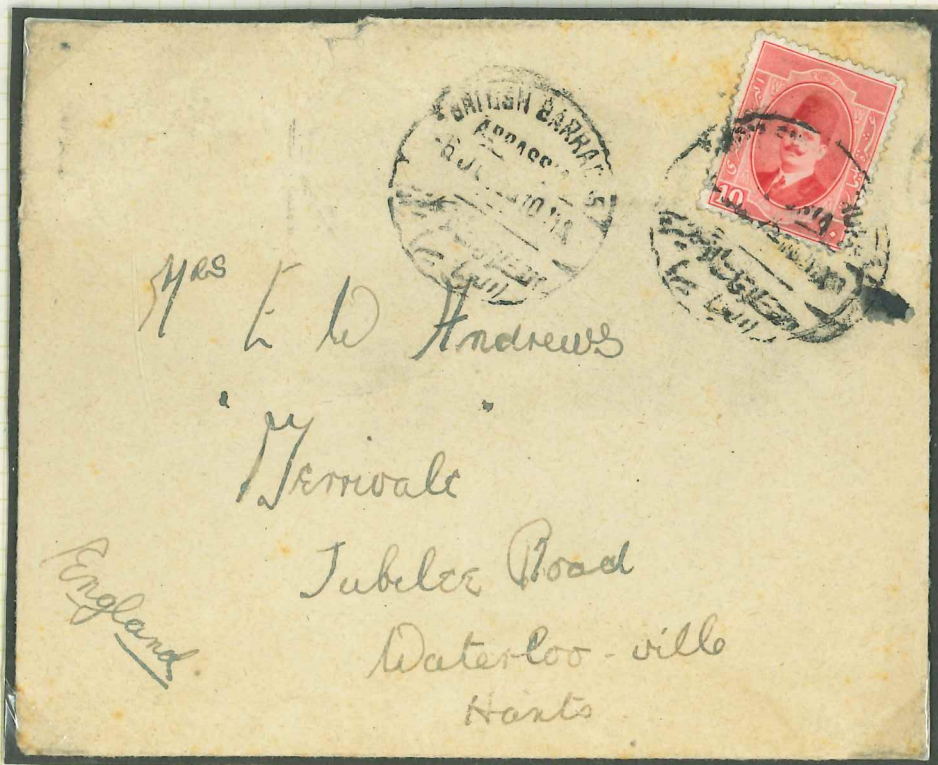 BRITISH BARRACKS
ABBASSIA
10
Mrs E W Andrews
"Merrivale"
Jubilee Road
Waterloo-ville
Hants
England